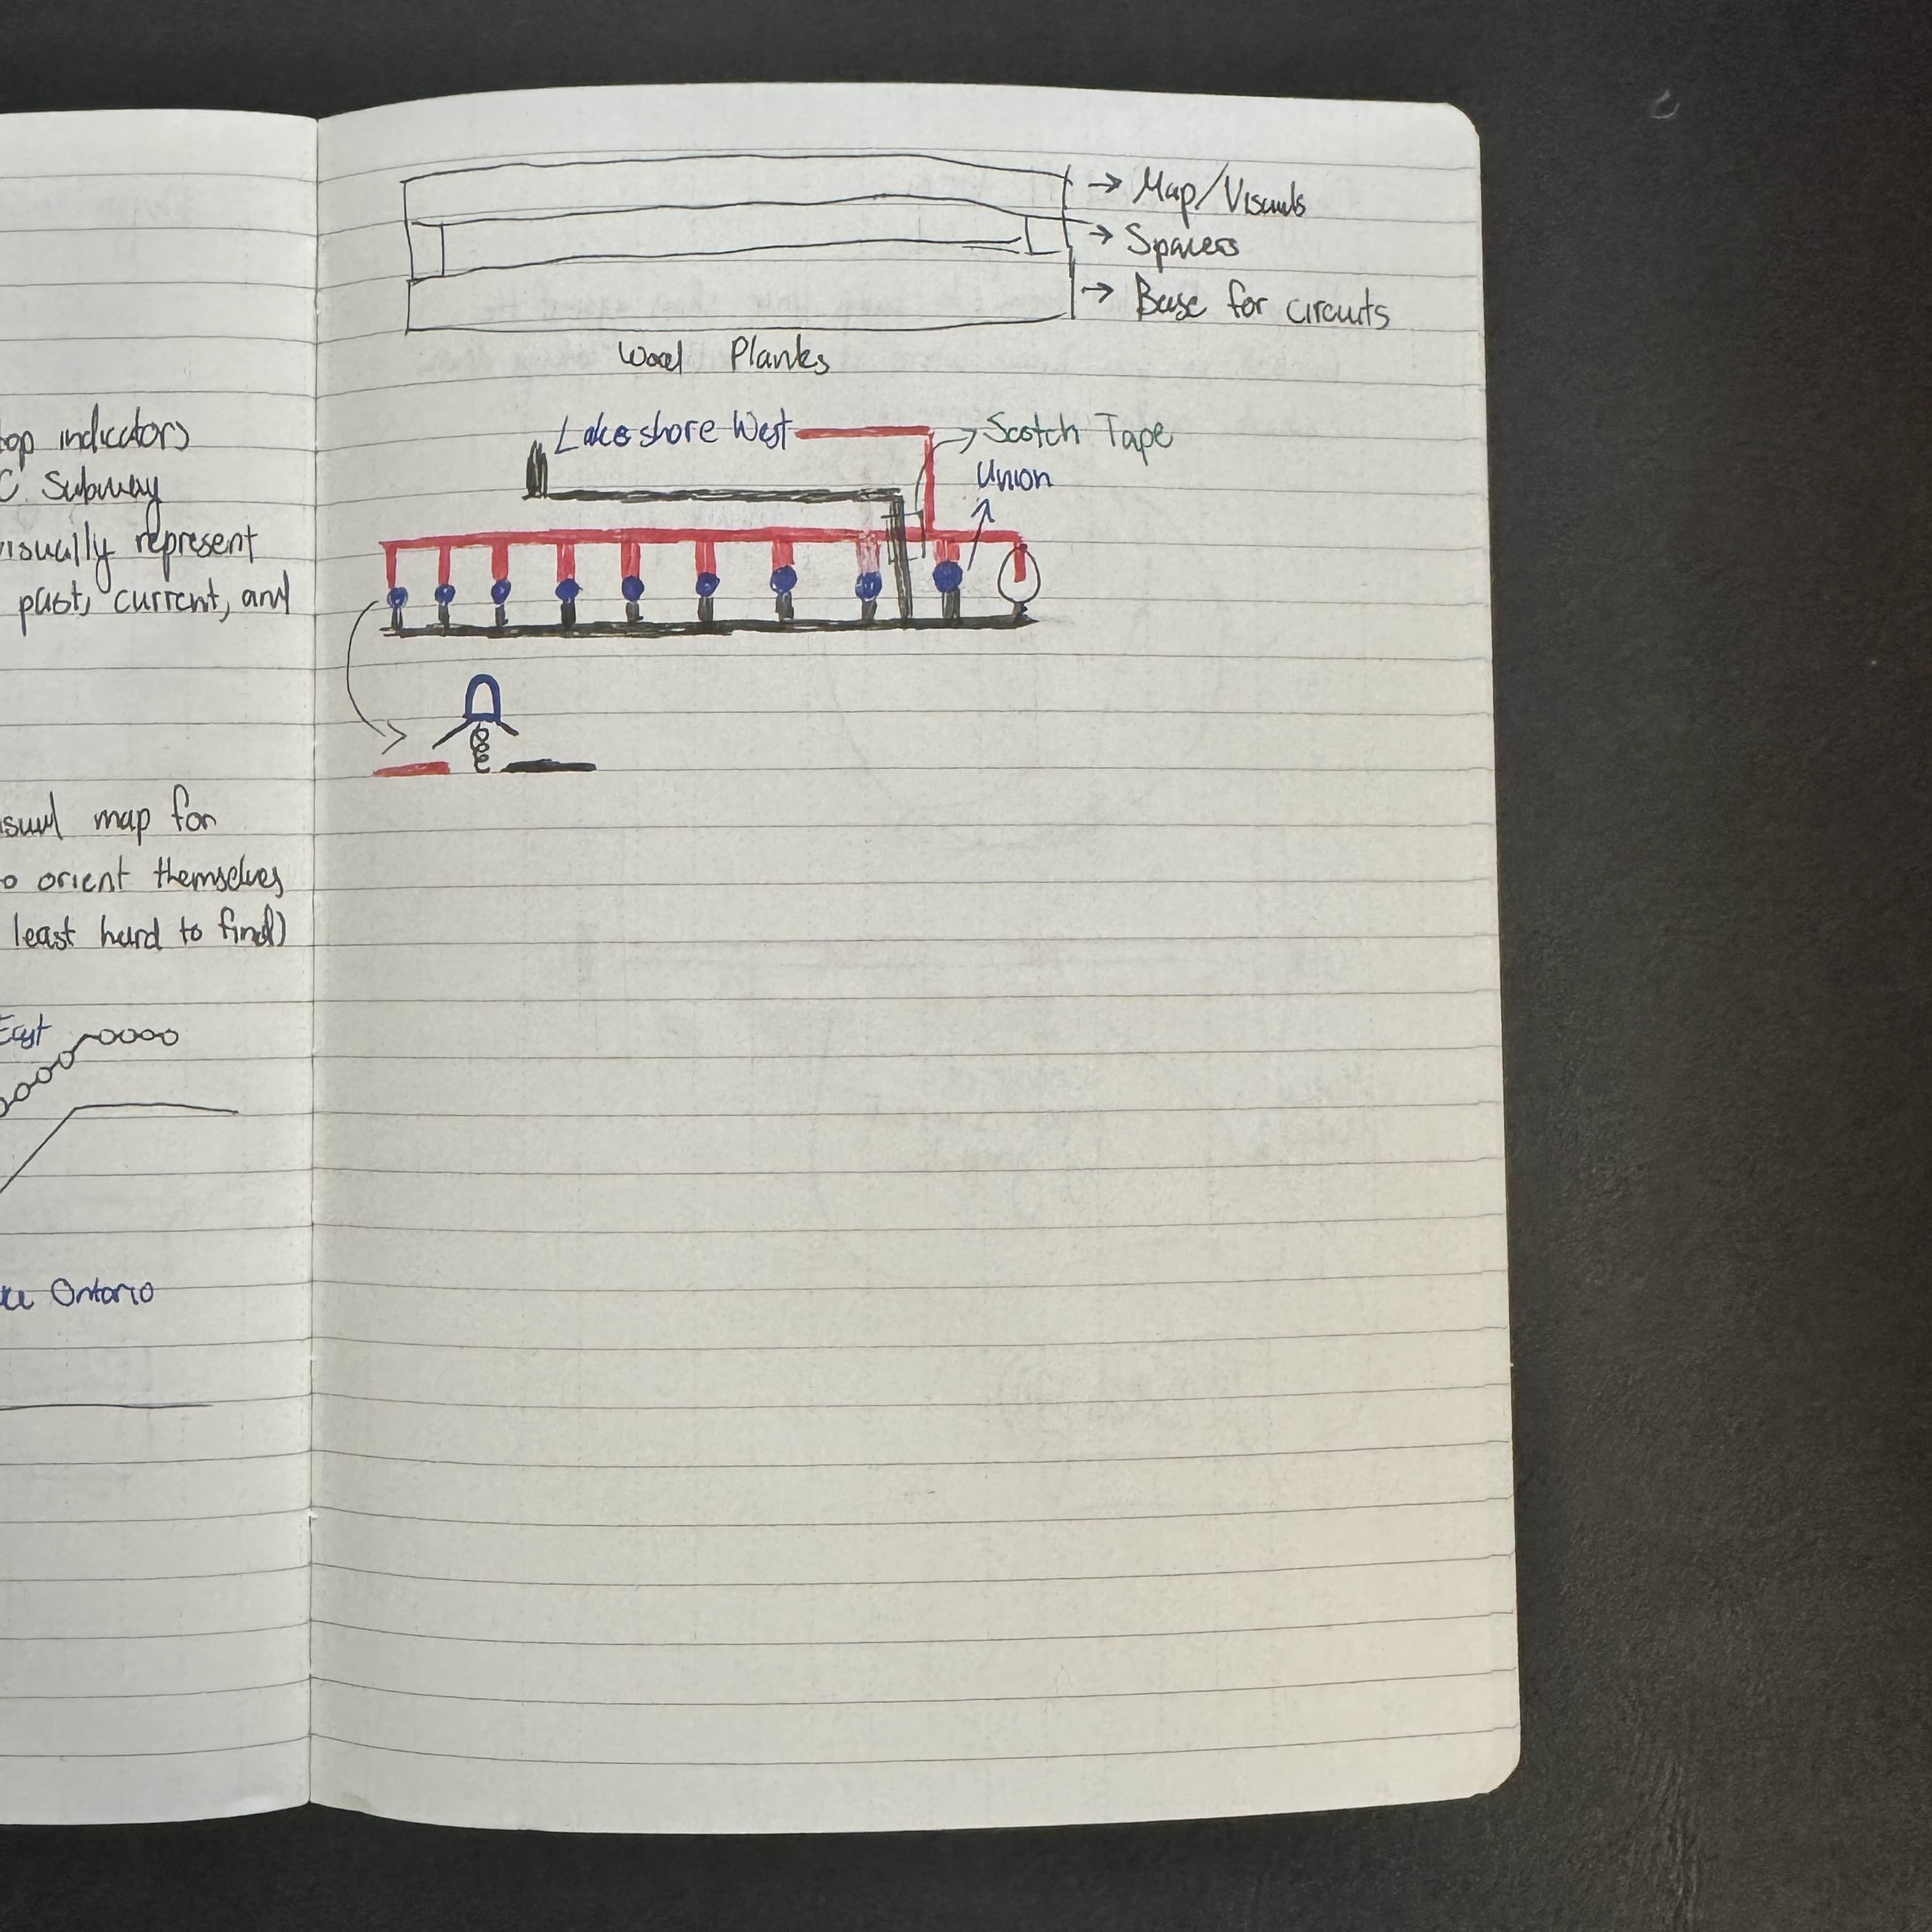 top indicators
C Subway
visually represent
past, current, and
visual map for
to orient themselves
least hard to find)
East
Ontario
→ Map/Visuals
→ Spacers
→ Base for circuits
Wood Planks
Lakeshore West
Scotch Tape
Union